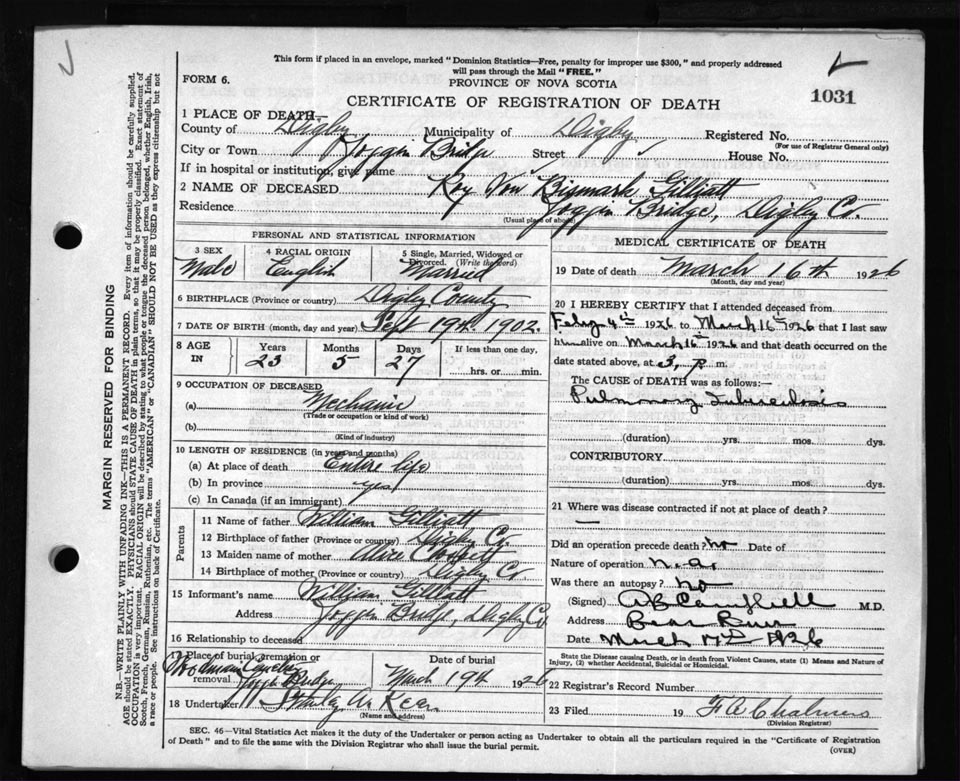 This form if placed in an envelope, marked "Dominion Statistics—Free, penalty for improper use $300," and properly addressed
will pass through the Mail "FREE."
FORM 6.
PROVINCE OF NOVA SCOTIA
CERTIFICATE OF REGISTRATION OF DEATH
1031
1 PLACE OF DEATH—
County of Digby Municipality of Digby Registered No.
(For use of Registrar General only)
City or Town Joggin Bridge Street House No.
If in hospital or institution, give name
2 NAME OF DECEASED Roy Von Bismark Gilliatt
Residence Joggin Bridge, Digby Co.
(Usual place of abode)
PERSONAL AND STATISTICAL INFORMATION
3 SEX 4 RACIAL ORIGIN 5 Single, Married, Widowed or
Divorced. (Write the word)
Male English Married
6 BIRTHPLACE (Province or country) Digby County
7 DATE OF BIRTH (month, day and year) Sept 19th 1902.
8 AGE IN Years Months Days If less than one day,
23 5 27 hrs. or min.
9 OCCUPATION OF DECEASED
(a) Mechanic
(Trade or occupation or kind of work)
(b)
(Kind of industry)
10 LENGTH OF RESIDENCE (in years and months)
(a) At place of death Entire life
(b) In province yes
(c) In Canada (if an immigrant)
Parents
11 Name of father William Gilliatt
12 Birthplace of father (Province or country) Digby Co.
13 Maiden name of mother Alice
14 Birthplace of mother (Province or country) Digby Co.
15 Informant's name William Gilliatt
Address Joggin Bridge, Digby Co
16 Relationship to deceased
17 Place of burial, cremation or
removal Woodman Joggin Bridge
Date of burial
March 19th 1926
18 Undertaker
(Name and address)
MEDICAL CERTIFICATE OF DEATH
19 Date of death March 16th 1926
(Month, day and year)
20 I HEREBY CERTIFY that I attended deceased from
Feby 4th 1926 to March 16th 1926 that I last saw
him alive on March 16th 1926 and that death occurred on the
date stated above, at 3, P. m.
The CAUSE OF DEATH was as follows:—
Pulmonary Tuberculosis
(duration) yrs. mos. dys.
CONTRIBUTORY
(duration) yrs. mos. dys.
21 Where was disease contracted if not at place of death?
—
Did an operation precede death? no Date of
Nature of operation
Was there an autopsy? no
(Signed) A B Campbell M.D.
Address Bear River
Date March 17th 1926
State the Disease causing Death, or in death from Violent Causes, state (1) Means and Nature of
Injury, (2) whether Accidental, Suicidal or Homicidal.
22 Registrar's Record Number
23 Filed 19 Chalmers
(Division Registrar)
SEC. 46—Vital Statistics Act makes it the duty of the Undertaker or person acting as Undertaker to obtain all the particulars required in the "Certificate of Registration
of Death" and to file the same with the Division Registrar who shall issue the burial permit.
(OVER)
MARGIN RESERVED FOR BINDING
N.B.—WRITE PLAINLY WITH UNFADING INK—THIS IS A PERMANENT RECORD. Every item of information should be carefully supplied.
AGE should be stated EXACTLY. PHYSICIANS should STATE CAUSE OF DEATH in plain terms, so that it may be properly classified. Exact statement of
OCCUPATION is very important. RACIAL ORIGIN will be described by stating to what people or tongue the deceased person belonged, whether English, Irish,
Scotch, French, German, Russian, Ruthenian, etc. The terms "AMERICAN" or "CANADIAN" SHOULD NOT BE USED as they express citizenship but not
a race or people. See instructions on back of Certificate.